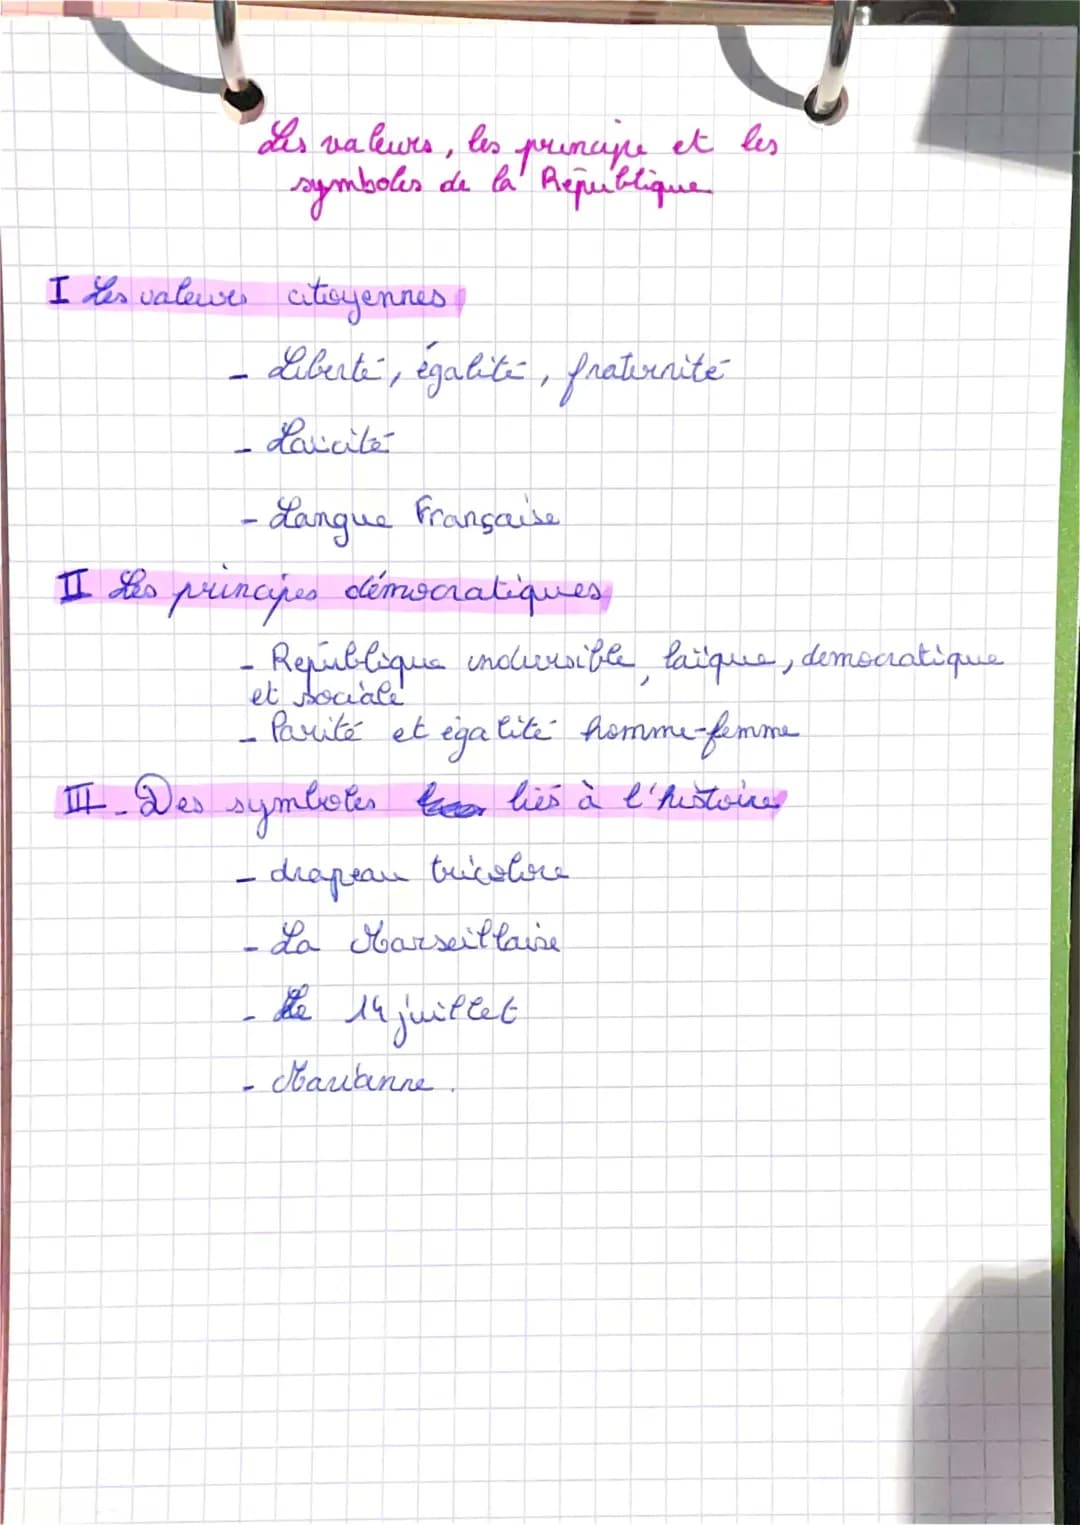 Les valeurs, les principe et les
symboles de la République
I Les valeurs citoyennes
- Liberté, égalité, fraternité
- Laïcité
- Langue Française
II Les principes démocratiques
- République indivisible, laïque, démocratique
et sociale
- Parité et égalité homme-femme
III - Des symboles liés à l'histoire
- drapeau tricolore
- La Marseillaise
- Le 14 juillet
- Marianne.